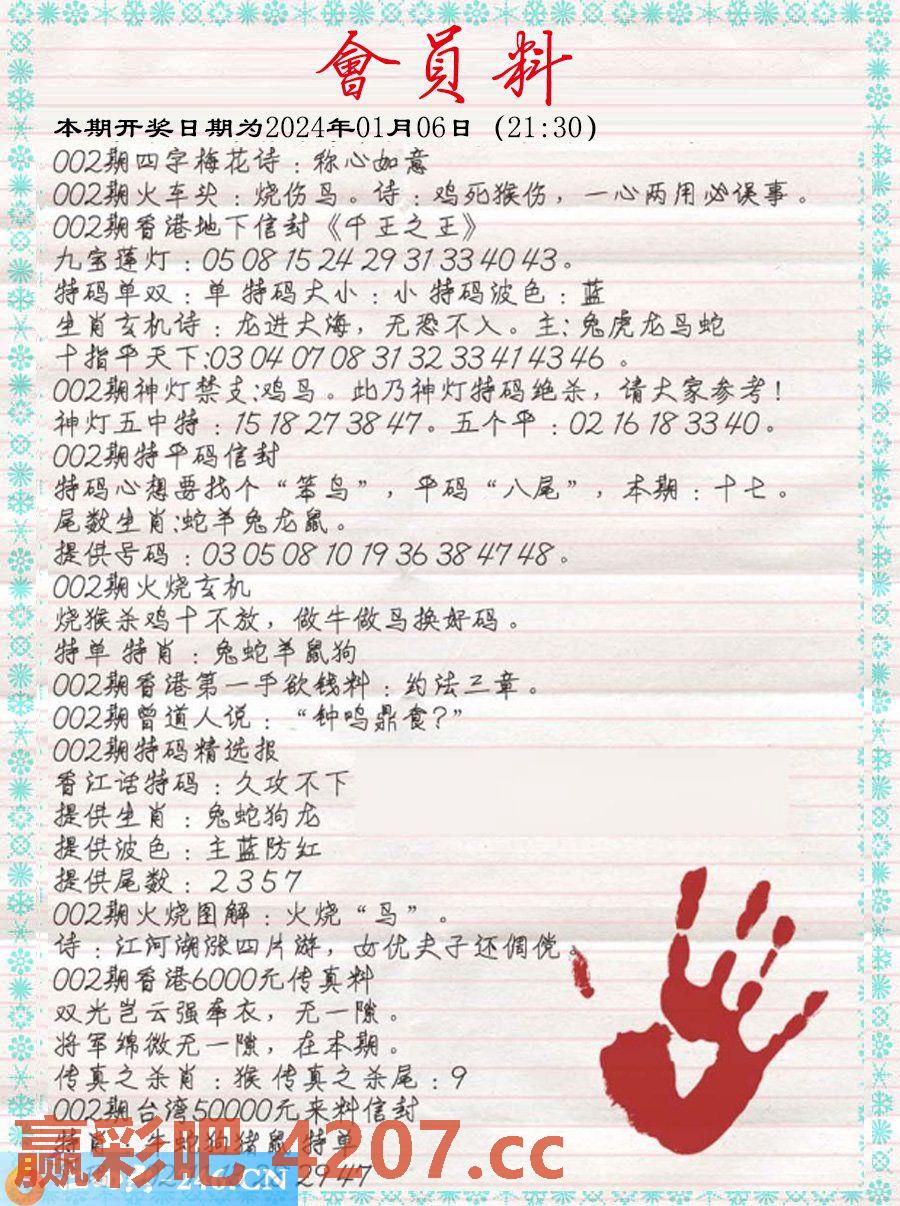 會員料
本期开奖日期为2024年01月06日（21:30）
002期四字梅花诗：称心如意
002期火车头：烧伤鸟。诗：鸡死猴伤，一心两用必误事。
002期香港地下信封《千王之王》
九宝莲灯：05 08 15 24 29 31 33 40 43。
特码单双：单 特码大小：小 特码波色：蓝
生肖玄机诗：龙进大海，无恐不入。主：兔虎龙马蛇
十指平天下:03 04 07 08 31 32 33 41 43 46 。
002期神灯禁支:鸡鸟。此乃神灯特码绝杀，请大家参考！
神灯五中特：15 18 27 38 47。五个平：02 16 18 33 40。
002期特平码信封
特码心想要找个“笨鸟”，平码“八尾”，本期：十七。
尾数生肖:蛇羊兔龙鼠。
提供号码：03 05 08 10 19 36 38 47 48。
002期火烧玄机
烧猴杀鸡十不放，做牛做马换好码。
特单 特肖：兔蛇羊鼠狗
002期香港第一手欲钱料：约法三章。
002期曾道人说：“钟鸣鼎食？”
002期特码精选报
香江话特码：久攻不下
提供生肖：兔蛇狗龙
提供波色：主蓝防红
提供尾数：2 3 5 7
002期火烧图解：火烧“鸟”。
诗：江河湖涨四片游，女优夫子还倜傥。
002期香港6000元传真料
双光岂云强牵衣，无一隙。
将军绵微无一隙，在本期。
传真之杀肖：猴 传真之杀尾：9
002期台湾50000元来料信封
特肖：牛蛇狗猪鼠 特单
29 47
赢彩吧 4207.cc
246.CN